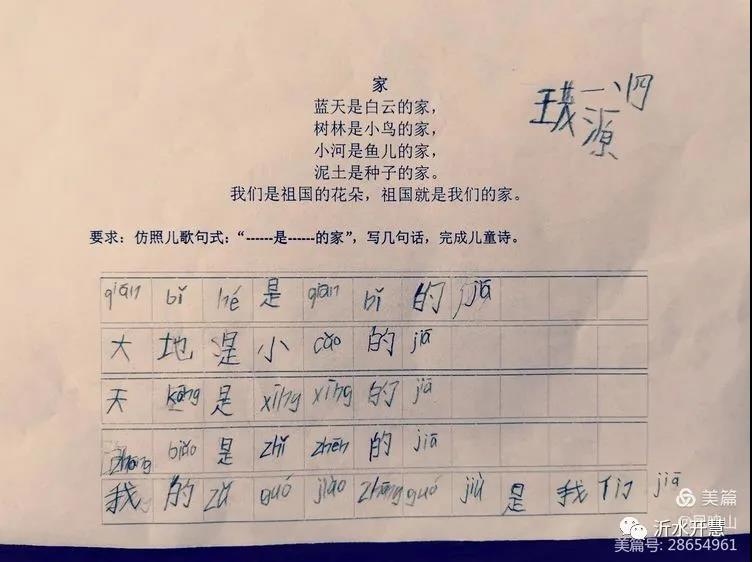 家
蓝天是白云的家，
树林是小鸟的家，
小河是鱼儿的家，
泥土是种子的家。
我们是祖国的花朵，祖国就是我们的家。
一、四
源
要求：仿照儿歌句式：“------是------的家”，写几句话，完成儿童诗。
qiān bǐ hé 是 qiān bǐ 的 jiā
大 地 是 小 cǎo 的 jiā
天 kōng 是 xīng xīng 的 jiā
zhōng biǎo 是 zhǐ zhēn 的 jiā
我 的 zǔ guó jiào zhōng guó jiù 是 我 们 jiā
美篇
沂水开慧
美篇号: 28654961